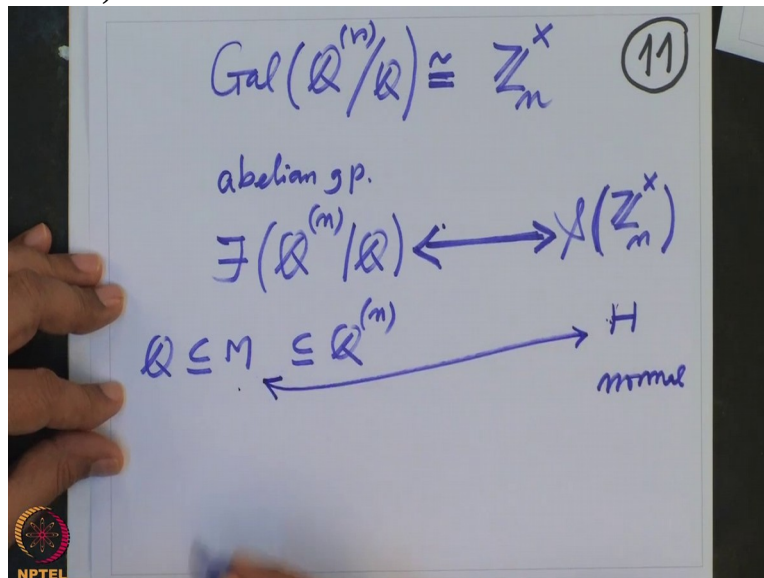 Gal(ℚ⁽ⁿ⁾/ℚ) ≅ ℤₙˣ
11
abelian gp.
ℱ(ℚ⁽ⁿ⁾|ℚ) ⟷ 𝒮(ℤₙˣ)
ℚ ⊆ M ⊆ ℚ⁽ⁿ⁾ ⟷ H
normal
NPTEL